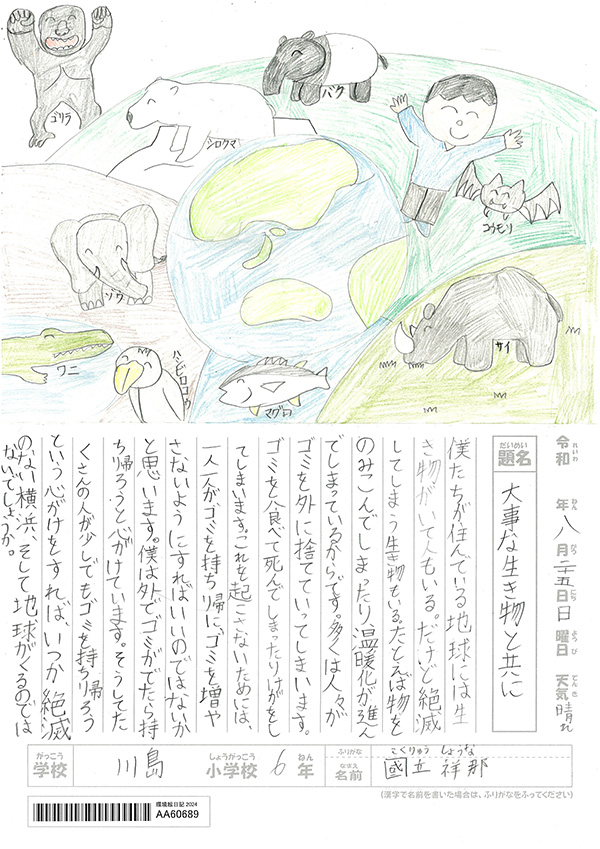 ゴリラ
シロクマ
バク
コウモリ
ゾウ
サイ
ワニ
ハシビロコウ
マグロ
れいわ ねん がつ にち ようび てんき
令和 年 八月二五日 日曜日 天気 晴れ
だいめい
題名 大事な生き物と共に
僕たちが住んでいる地球には生
き物がいて人もいる。だけど絶滅
してしまう生き物もいる。たとえば物を
のみこんでしまったり、温暖化が進ん
でしまっているからです。多くは人々が
ゴミを外に捨てていってしまいます。
ゴミを食べて死んでしまったりけがをし
てしまいます。これを起こさないためには、
一人一人がゴミを持ち帰に、ゴミを増や
さないようにすればいいのではないか
と思います。僕は外でゴミがでたら持
ち帰ろうと心がけています。そうしてた
くさんの人が少しでもゴミを持ち帰ろう
という心がけをすれば、いつか絶滅
のない横浜、そして地球がくるのでは
ないでしょうか。
がっこう しょうがっこう ねん ふりがな こくりゅう しょうな
学校 川島 小学校 6年 なまえ 名前 國立 祥那
(漢字で名前を書いた場合は、ふりがなをふってください)
環境絵日記 2024
AA60689